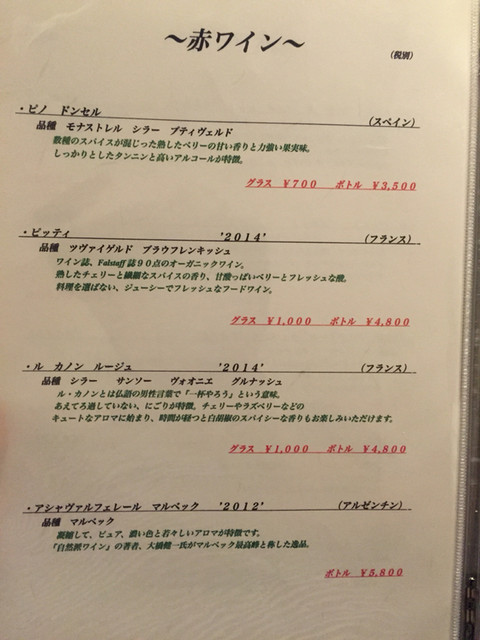 ～赤ワイン～
(税別)
・ピノ ドンセル (スペイン)
品種 モナストレル シラー プティヴェルド
数種のスパイスが混じった熟したベリーの甘い香りと力強い果実味。
しっかりとしたタンニンと高いアルコールが特徴。
グラス ¥700 ボトル ¥3,500
・ピッティ '2014' (フランス)
品種 ツヴァイゲルド ブラウフレンキッシュ
ワイン誌、Falstaff誌90点のオーガニックワイン。
熟したチェリーと繊細なスパイスの香り、甘酸っぱいベリーとフレッシュな酸。
料理を選ばない、ジューシーでフレッシュなフードワイン。
グラス ¥1,000 ボトル ¥4,800
・ル カノン ルージュ '2014' (フランス)
品種 シラー サンソー ヴォオニエ グルナッシュ
ル・カノンとは仏語の男性言葉で『一杯やろう』という意味。
あえてろ過していない、にごりが特徴。チェリーやラズベリーなどの
キュートなアロマに始まり、時間が経つと白胡椒のスパイシーな香りもお楽しみいただけます。
グラス ¥1,000 ボトル ¥4,800
・アシャヴァルフェレール マルベック '2012' (アルゼンチン)
品種 マルベック
凝縮して、ピュア、濃い色と若々しいアロマが特徴です。
『自然派ワイン』の著者、大橋健一氏がマルベック最高峰と称した逸品。
ボトル ¥5,800